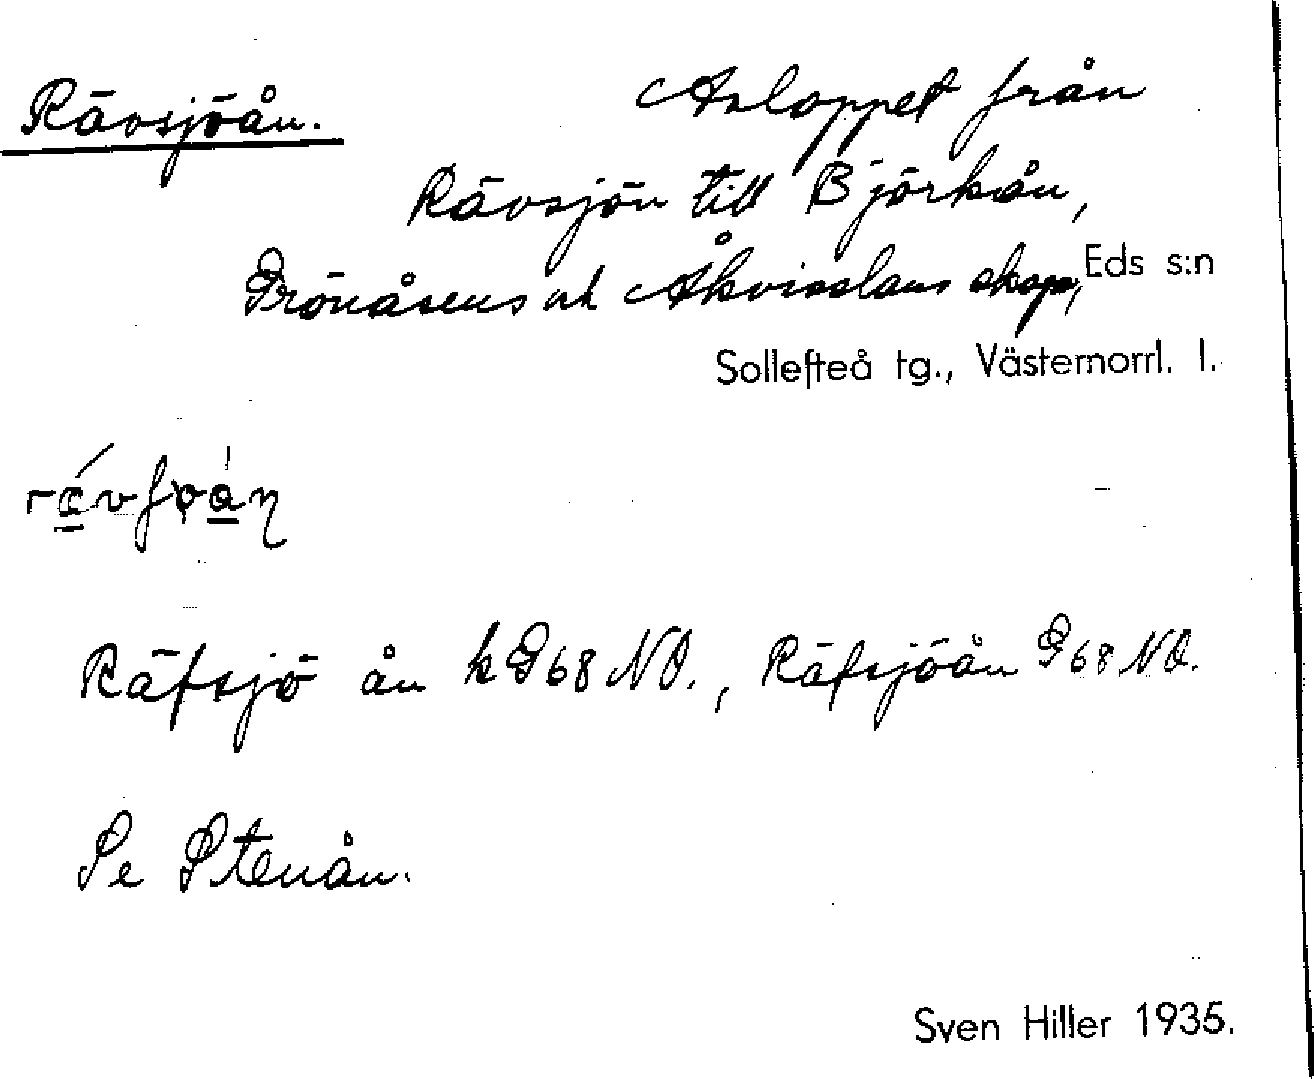 Rävsjöån. Avloppet från
Rävsjön till Björkån,
Grönåsens och Åkvisslans skogar, Eds s:n
Sollefteå tg., Västernorrl. l.
Räfsjö ån k G68 NO., Räfsjöån G68 NO.
Se Stenån.
Sven Hiller 1935.